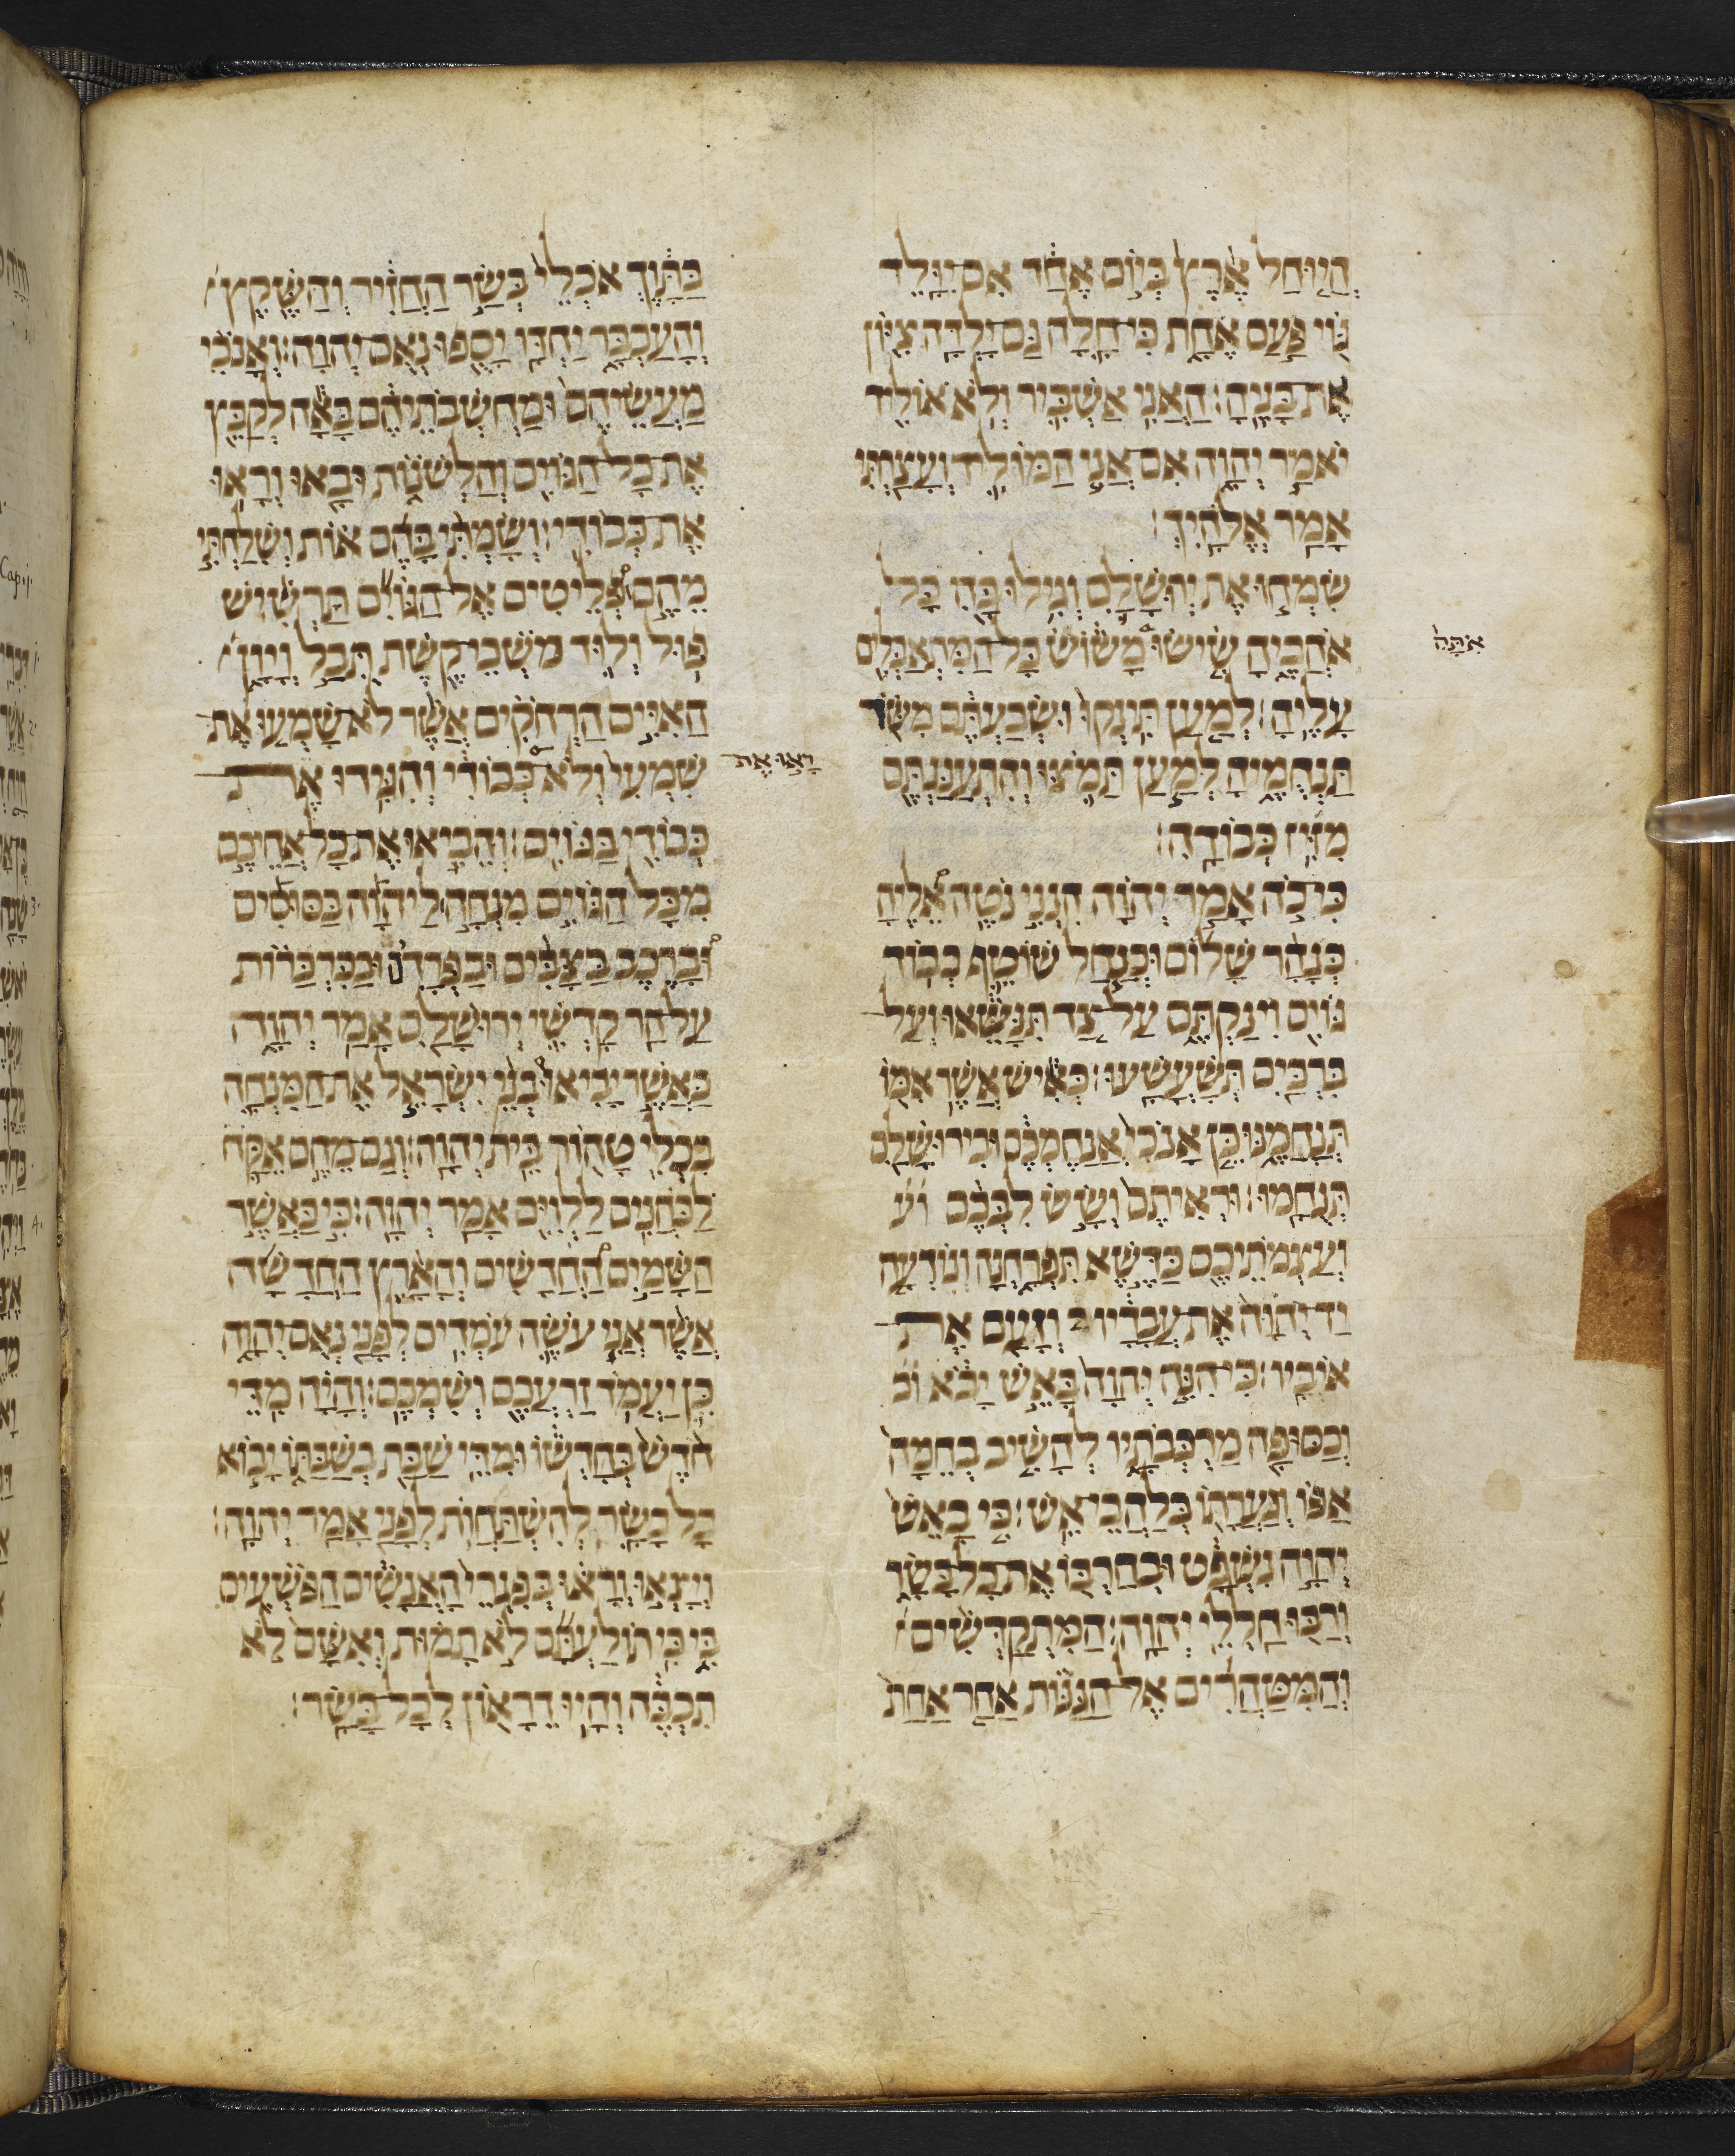 הֲיוּחַל אֶרֶץ בְּיוֹם אֶחָד אִם יִוָּלֵד
גּוֹי פַּעַם אֶחָת כִּי חָלָה גַּם יָלְדָה צִיּוֹן
אֶת בָּנֶיהָ׃ הַאֲנִי אַשְׁבִּיר וְלֹא אוֹלִיד
יֹאמַר יְהוָה אִם אֲנִי הַמּוֹלִיד וְעָצַרְתִּי
אָמַר אֱלֹהָיִךְ׃
שִׂמְחוּ אֶת יְרוּשָׁלִַם וְגִילוּ בָהּ כָּל
אֹהֲבֶיהָ שִׂישׂוּ מָשׂוֹשׂ כָּל הַמִּתְאַבְּלִים
אִתָּהּ
עָלֶיהָ׃ לְמַעַן תִּינְקוּ וּשְׂבַעְתֶּם מִשֹּׁד
תַּנְחֻמֶיהָ לְמַעַן תָּמֹצּוּ וְהִתְעַנַּגְתֶּם
מִזִּיז כְּבוֹדָהּ׃
כִּי כֹה אָמַר יְהוָה הִנְנִי נֹטֶה אֵלֶיהָ
כְּנָהָר שָׁלוֹם וּכְנַחַל שׁוֹטֵף כְּבוֹד
גּוֹיִם וִינַקְתֶּם עַל צַד תִּנָּשֵׂאוּ וְעַל
בִּרְכַּיִם תְּשָׁעֳשָׁעוּ׃ כְּאִישׁ אֲשֶׁר אִמּוֹ
תְּנַחֲמֶנּוּ כֵּן אָנֹכִי אֲנַחֶמְכֶם וּבִירוּשָׁלִַם
תְּנֻחָמוּ׃ וּרְאִיתֶם וְשָׂשׂ לִבְּכֶם וע
וְעַצְמֹתֵיכֶם כַּדֶּשֶׁא תִפְרַחְנָה וְנוֹדְעָה
יַד יְהוָה אֶת עֲבָדָיו וְזָעַם אֶת
אֹיְבָיו׃ כִּי הִנֵּה יְהוָה בָּאֵשׁ יָבֹא וכ
וְכַסּוּפָה מַרְכְּבֹתָיו לְהָשִׁיב בְּחֵמָה
אַפּוֹ וְגַעֲרָתוֹ בְּלַהֲבֵי אֵשׁ׃ כִּי בָאֵשׁ
יְהוָה נִשְׁפָּט וּבְחַרְבּוֹ אֶת כָּל בָּשָׂר
וְרַבּוּ חַלְלֵי יְהוָה׃ הַמִּתְקַדְּשִׁים
וְהַמִּטַּהֲרִים אֶל הַגַּנּוֹת אַחַר אַחַת
בַּתָּוֶךְ אֹכְלֵי בְּשַׂר הַחֲזִיר וְהַשֶּׁקֶץ
וְהָעַכְבָּר יַחְדָּו יָסֻפוּ נְאֻם יְהוָה׃ וְאָנֹכִי
מַעֲשֵׂיהֶם וּמַחְשְׁבֹתֵיהֶם בָּאָה לְקַבֵּץ
אֶת כָּל הַגּוֹיִם וְהַלְּשֹׁנוֹת וּבָאוּ וְרָאוּ
אֶת כְּבוֹדִי׃ וְשַׂמְתִּי בָהֶם אוֹת וְשִׁלַּחְתִּי
מֵהֶם פְּלֵיטִים אֶל הַגּוֹיִם תַּרְשִׁישׁ
פּוּל וְלוּד מֹשְׁכֵי קֶשֶׁת תֻּבַל וְיָוָן
הָאִיִּים הָרְחֹקִים אֲשֶׁר לֹא שָׁמְעוּ אֶת
שִׁמְעִי וְלֹא כְּבוֹדִי וְהִגִּידוּ אֶת
רָאוּ אֶת
כְּבוֹדִי בַּגּוֹיִם׃ וְהֵבִיאוּ אֶת כָּל אֲחֵיכֶם
מִכָּל הַגּוֹיִם מִנְחָה לַיהוָה בַּסּוּסִים
וּבָרֶכֶב בַּצַּבִּים וּבַפְּרָדִים וּבַכִּרְכָּרוֹת
עַל הַר קָדְשִׁי יְרוּשָׁלִַם אָמַר יְהוָה
כַּאֲשֶׁר יָבִיאוּ בְנֵי יִשְׂרָאֵל אֶת הַמִּנְחָה
בִּכְלִי טָהוֹר בֵּית יְהוָה׃ וְגַם מֵהֶם אֶקַּח
לַכֹּהֲנִים לַלְוִיִּם אָמַר יְהוָה׃ כִּי כַאֲשֶׁר
הַשָּׁמַיִם הַחֲדָשִׁים וְהָאָרֶץ הַחֲדָשָׁה
אֲשֶׁר אֲנִי עֹשֶׂה עֹמְדִים לְפָנַי נְאֻם יְהוָה
כֵּן יַעֲמֹד זַרְעֲכֶם וְשִׁמְכֶם׃ וְהָיָה מִדֵּי
חֹדֶשׁ בְּחָדְשׁוֹ וּמִדֵּי שַׁבָּת בְּשַׁבַּתּוֹ יָבוֹא
כָל בָּשָׂר לְהִשְׁתַּחֲוֺת לְפָנַי אָמַר יְהוָה׃
וְיָצְאוּ וְרָאוּ בְּפִגְרֵי הָאֲנָשִׁים הַפֹּשְׁעִים
בִּי כִּי תוֹלַעְתָּם לֹא תָמוּת וְאִשָּׁם לֹא
תִכְבֶּה וְהָיוּ דֵרָאוֹן לְכָל בָּשָׂר׃